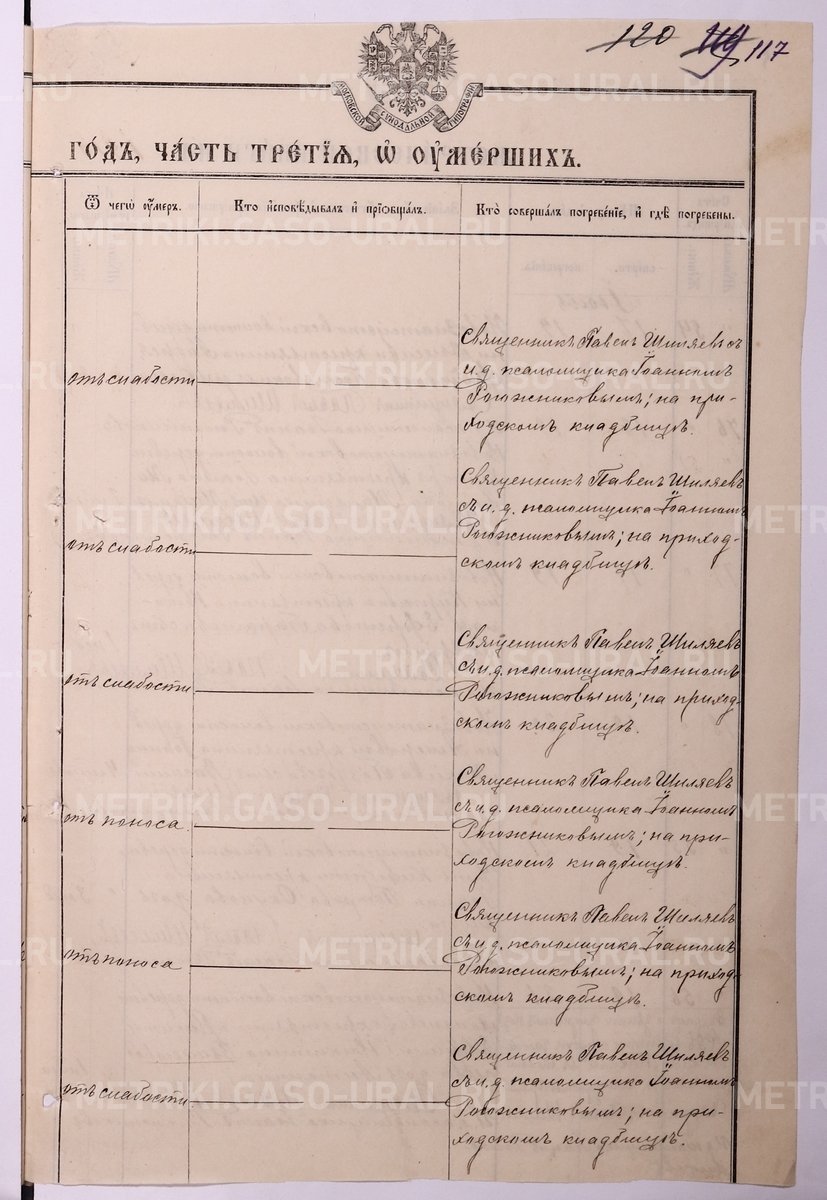 120 119 117
МОСКОВСКОЙ СУНОДАЛЬНОЙ ТИПОГРАФІИ
ГО́ДЪ, ЧА́СТЬ ТРЕ́ТІѦ, Ѡ҆ ОУ҆МЕ́РШИХЪ.
Ѿ чегѡ̀ оу҆́меръ.
Кто̀ и҆сповѣ́дывалъ и҆ прїѡбща́лъ.
Кто̀ соверша́лъ погребе́нїе, и҆ гдѣ̀ погребены̀.
отъ слабости
Священникъ Павелъ Шиляевъ съ
и. д. псаломщика Іоанномъ
Рогожниковымъ; на при-
ходскомъ кладбищѣ.
отъ слабости
Священникъ Павелъ Шиляевъ
съ и. д. псаломщика Іоанномъ
Рогожниковымъ; на приход-
скомъ кладбищѣ.
отъ слабости
Священникъ Павелъ Шиляевъ
съ и. д. псаломщика Іоанномъ
Рогожниковымъ; на приход-
скомъ кладбищѣ.
отъ поноса
Священникъ Павелъ Шиляевъ
съ и. д. псаломщика Іоанномъ
Рогожниковымъ; на при-
ходскомъ кладбищѣ.
отъ поноса
Священникъ Павелъ Шиляевъ
съ и. д. псаломщика Іоанномъ
Рогожниковымъ; на приход-
скомъ кладбищѣ.
отъ слабости
Священникъ Павелъ Шиляевъ
съ и. д. псаломщика Іоанномъ
Рогожниковымъ; на при-
ходскомъ кладбищѣ.
METRIKI.GASO-URAL.RU